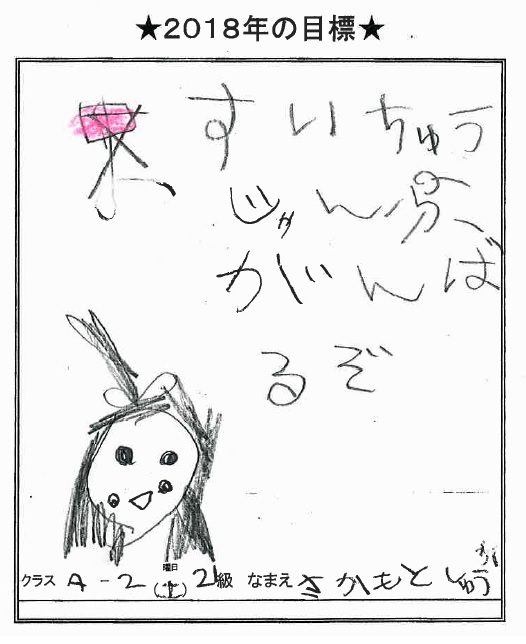 ★2018年の目標★
すいちゅう
じゃん
がんば
るぞ
クラス A-2 曜日 (土) 21級 なまえ さかもと しゅう